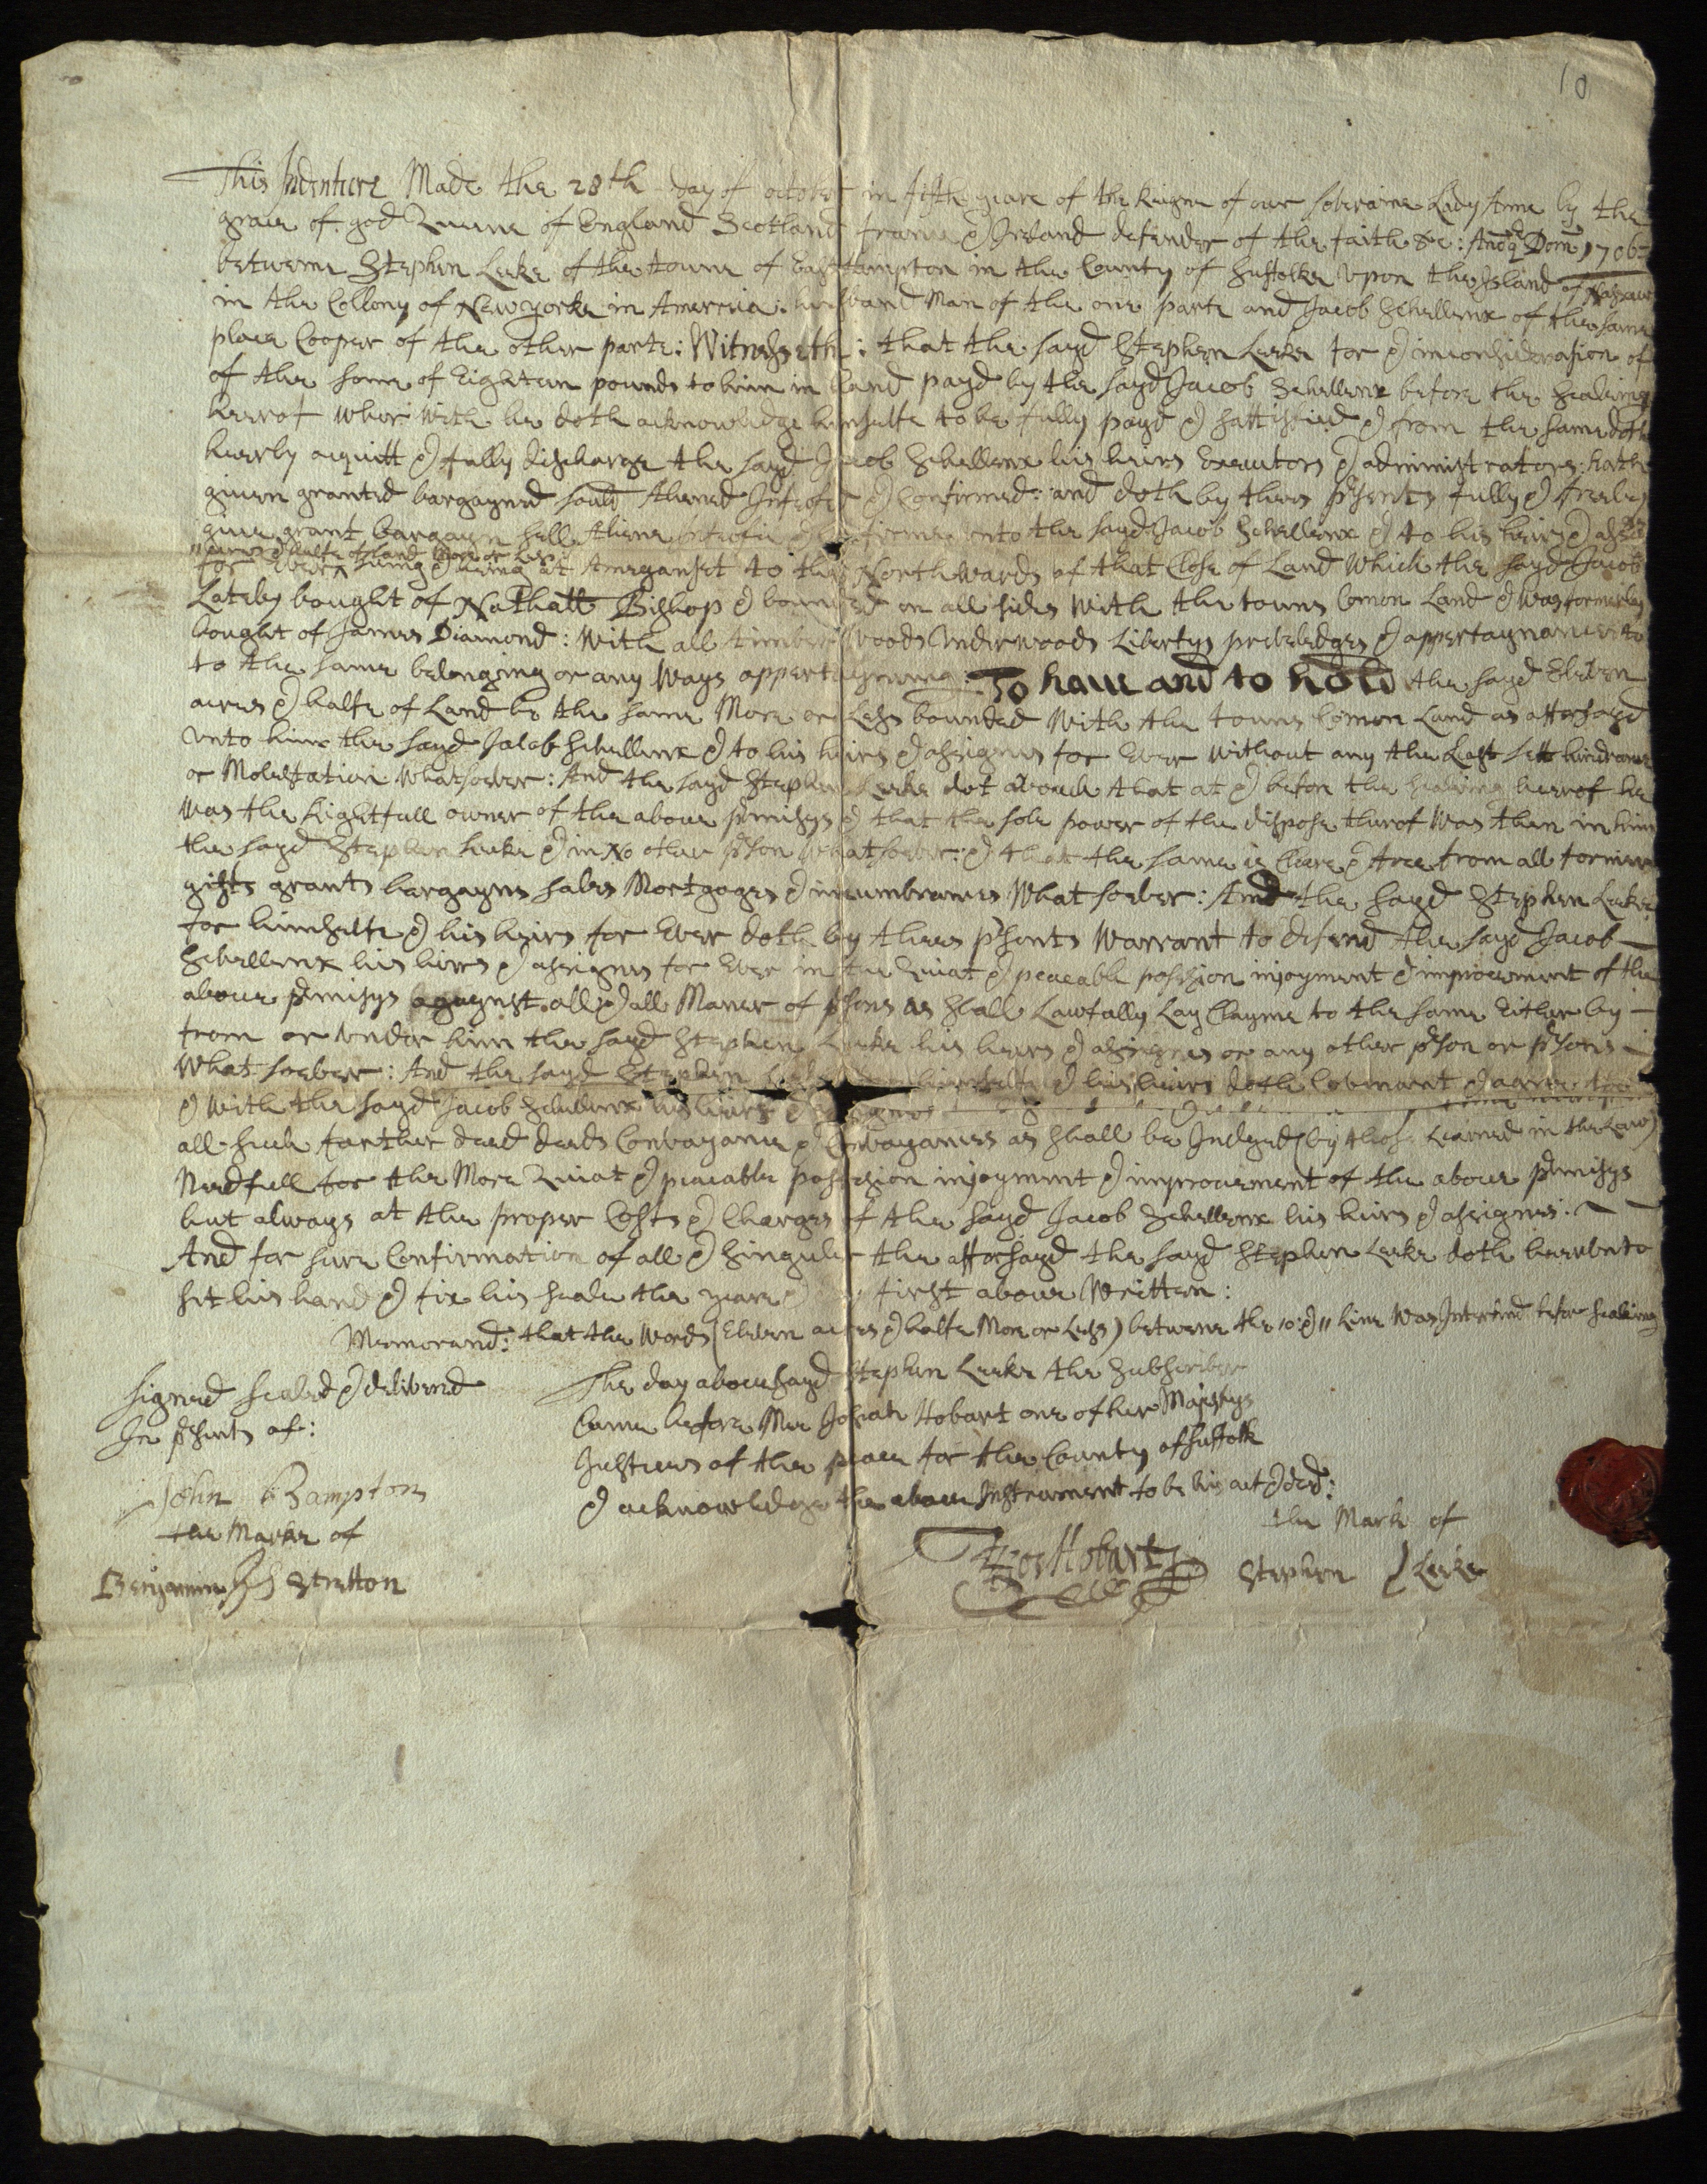 10
This Indenture Made the 28th day of october in fifth yeare of the Reigne of our soberaine Lady Anne by the
grace of god Queene of England Scotland france & Ireland defender of the faith &c: Anoq Dom 1706
betweene Stephen Leeke of the towne of Easthampton in the County of Suffolke Vpon the Island of Nassaw
in the Collony of Newyorke in America: husband Man of the one parte and Jacob Schellenx of the same
place Cooper of the other parte: Witnesseth: that the sayd Stephen Leeke for & in consideration of
of the some of Eighteen pounds to him in hand payd by the sayd Jacob Schellenx before the Sealeing
heerof wheir with he doth acknowledge himselfe to be fully payd & sattisfied & from the same doth
heerby acquitt & fully discharge the sayd Jacob Schellenx his heires Executors & administrators: hath
giuen granted bargayned sould Aliened Infeofed & Confirmed: and doth by thees psents fully & freely
giue grant bargayn sell Aliene unto the sayd Jacob Schellenx & to his heires &
11 acres & halfe of Land More or Less
for Euer lieing & being at Ameganset to the Northwards of that Close of Land which the sayd Jacob
Lateby bought of Nathall Bishop & bounded on all sides with the towns Comon Land & was formerly
bought of James Diamond: With all timber Woods Vnderwoods Libertys prebeledges & appertaynances to
to the same belonging or any ways appertayneing: To haue and to hold the sayd Eleben
acres & halfe of Land be the same More or Less bounded with the towns Comon Land as afforsayd
vnto him the sayd Jacob Schellenx & to his heires & assignes for Euer without any the Last lett hindrance
or Molestation whatsoeber: And the sayd Stephen Leeke dot abouch that at & before the sealeing heerof he
was the Rightfull owner of the aboue pmisys & that the sole power of the dispose therof was then in him
the sayd Stephen Leeke & in No other pson whatsoeber: & that the same is cleere & free from all former
gifts grants bargayns sales Mortgages & incumbrances What soeber: And the sayd Stephen Leeke
for himselfe & his heirs for Euer doth by thees psents Warrant to defend the sayd Jacob
Schellenx his hires & assignes for Euer in the Quiat & peaceable possesion injoyment & improuement of the
aboue pmisys agaynst all & all Maner of psons as shall Lawfully Lay Clayme to the same Either by
from or vnder him the sayd Stephen Leeke his heirs & assignes or any other pson or psons
What soeber: And the sayd Stephen himselfe & his heirs doth Couenant & agree to
& with the sayd Jacob Schellenx his heirs &
all such farther deed deeds Conbayance & Conbayances as shall be Judged (by those Learned in the Law)
Needfull for the More Quiat & peaceable possesion injoyment & improuement of the aboue pmisys
but always at the proper Costs & Charges of the sayd Jacob Schellenx his heirs & assignes:
And for sure Confirmation of all & singuler the afforsayd the sayd Stephen Leeke doth heerunto
set his hand & fix his seale the yeare & first aboue Written:
Memorand: that the Words (Eleben acres & halfe More or Less) betweene the 10: & 11 line Was Interlined before sealeing
Signed sealed & delibered
In psents of:
John Bampton
the Marke of
Benjamin Stretton
The day abouesayd Stephen Leeke the Subscriber
Came before Mee Josiah Hobart one of her Majestys
Justices of the peace for the County of Suffolk
& acknowledge the aboue Instrument to be his act & deed:
Jos Hobart
the Mark of
Stephen Leeke